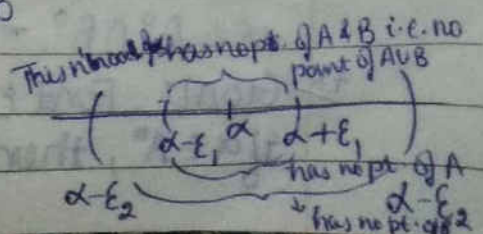 This n'hood has no pt. of A & B i.e. no
point of A∪B
α-ε₁ α α+ε₁
has no pt of A
α-ε₂ α-ε₂
has no pt. of